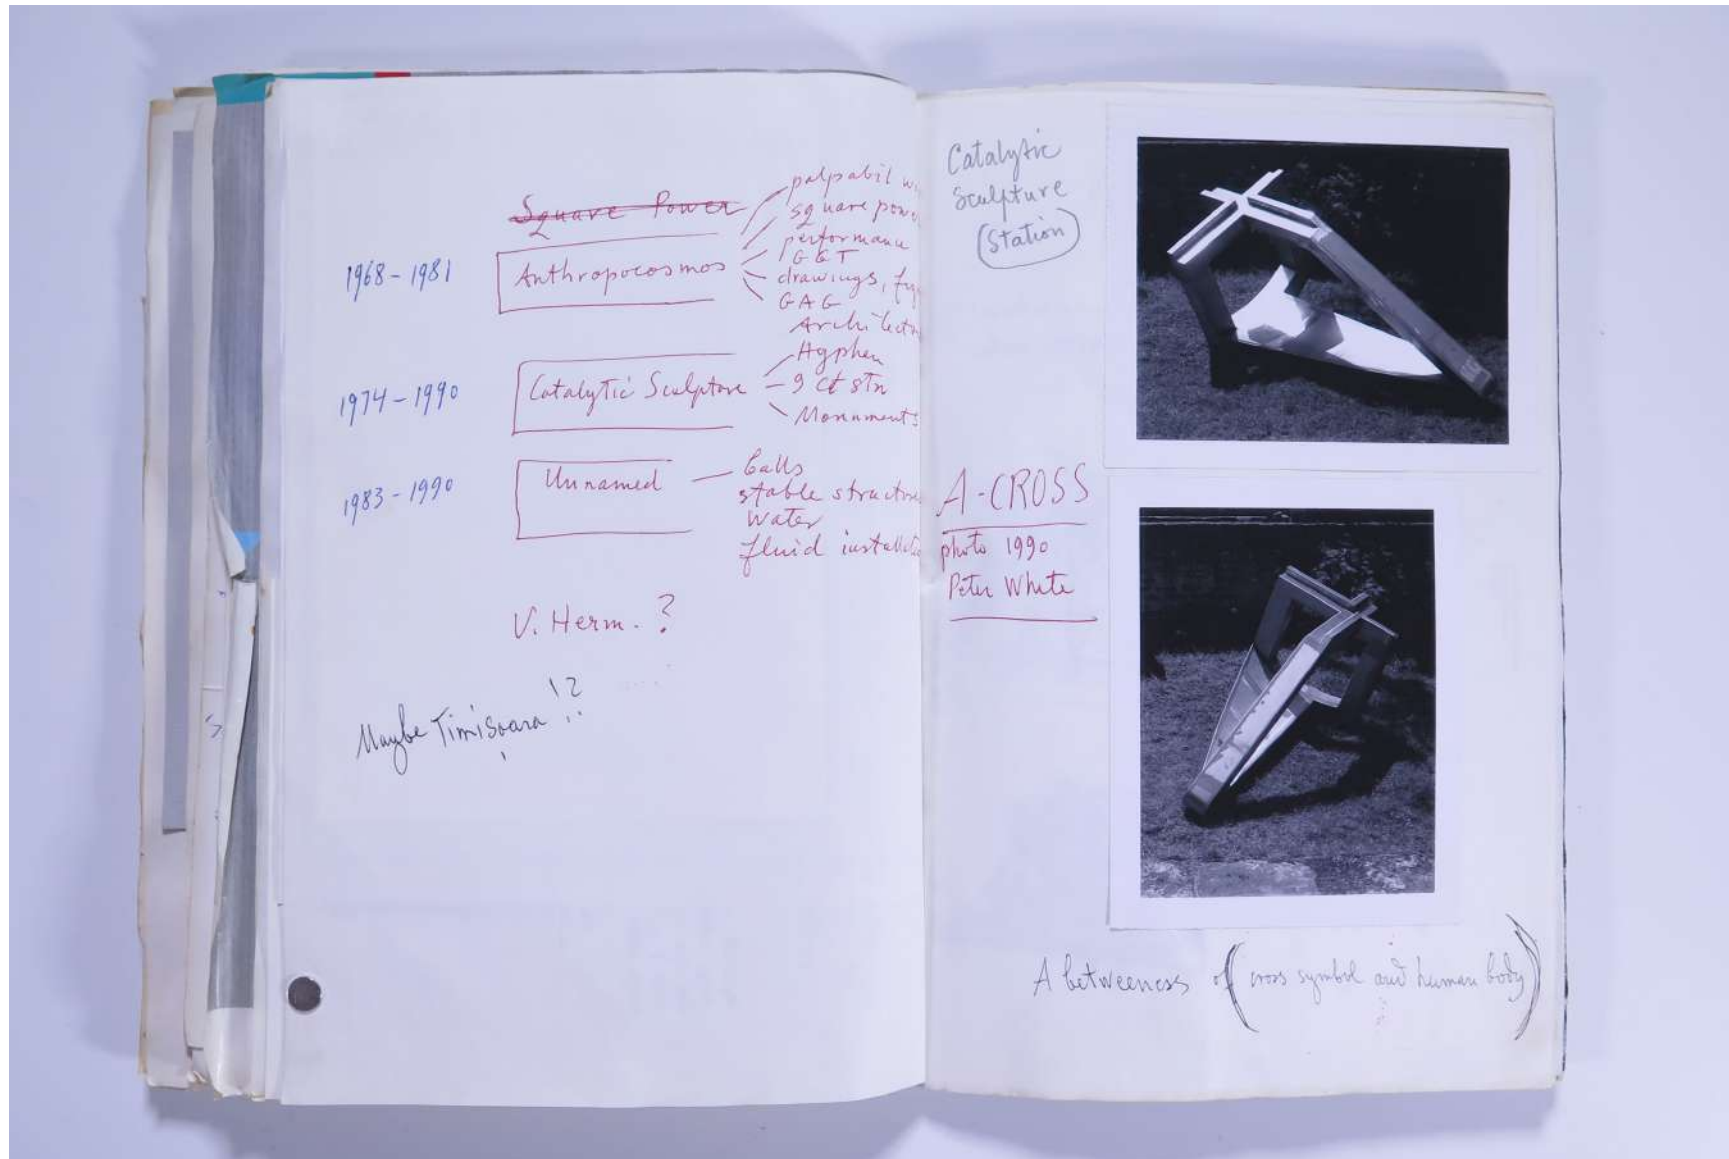 Square Power
1968 - 1981
Anthropocosmos
palpabil
square powe
performance
G & T
drawings,
GAG
Architectu
1974 - 1990
Catalytic Sculpture
Hyphen
9 ct stn
Monuments
1983 - 1990
Unnamed
balls
stable structure
water
fluid installatio
V. Herm. ?
Maybe Timisoara !?
Catalytic
Sculpture
(Station)
A-CROSS
photo 1990
Peter White
A betweeness of (cross symbol and human body)